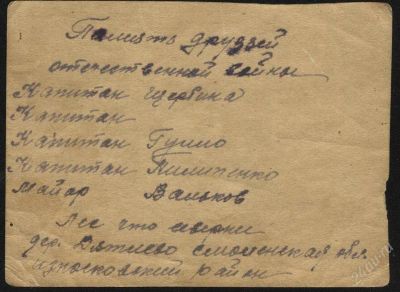 Память друзей
отечественной войны
Капитан Щербина
Капитан
Капитан Гулло
Капитан Пилипенко
Майор Ваньков
Лес что
дер. Дятлево Смоленская обл
Износковский район